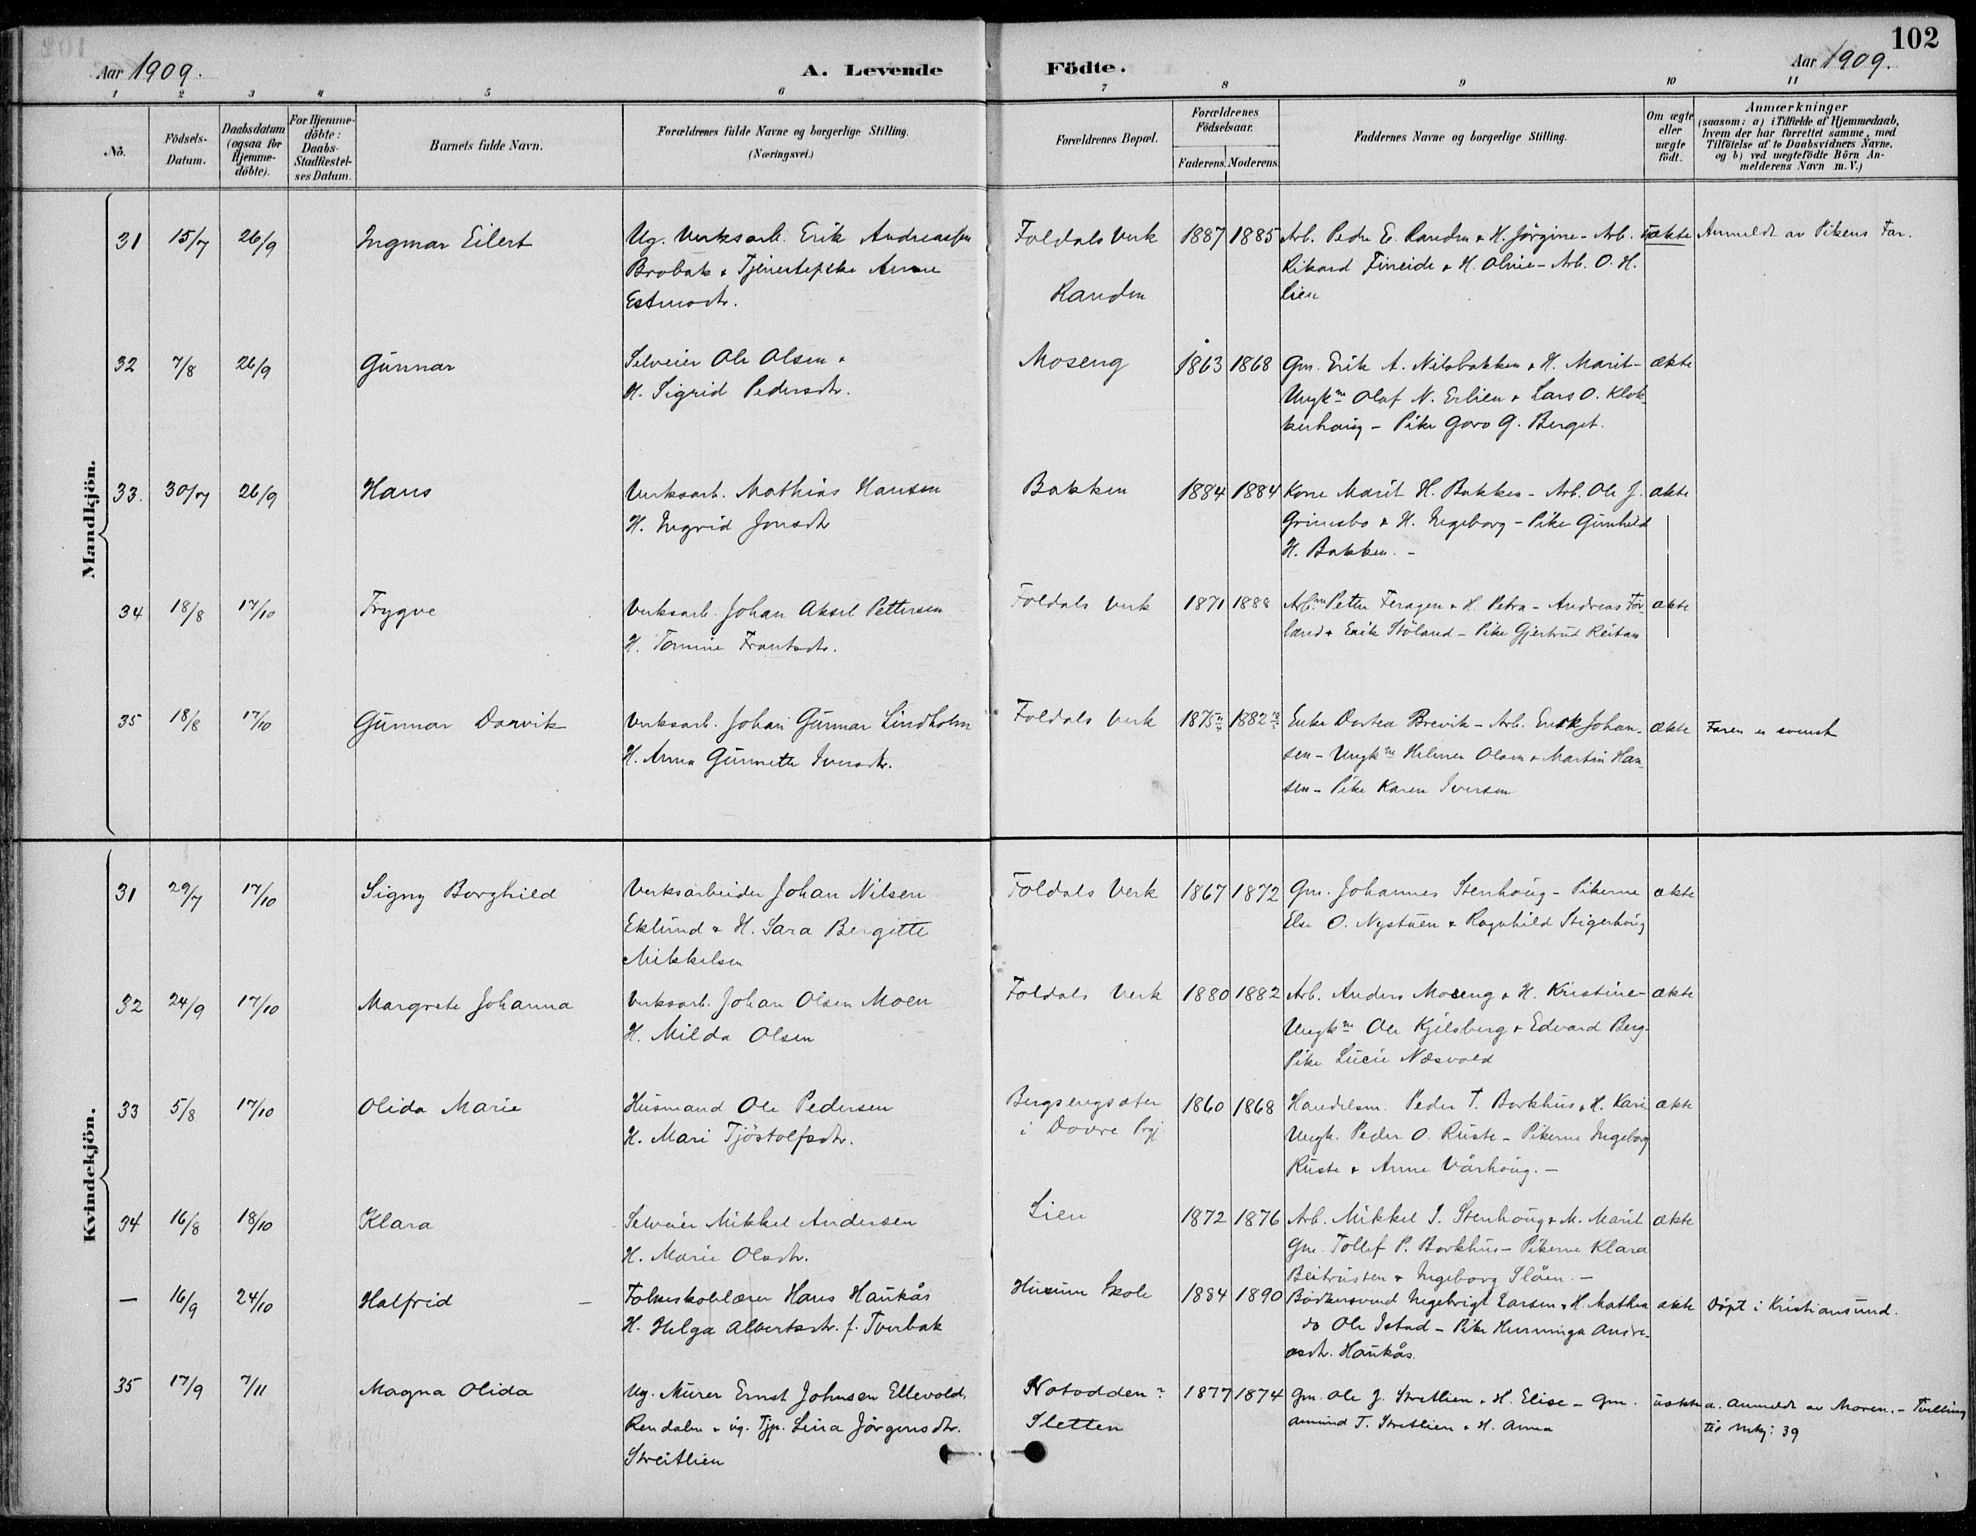 102
Aar 1909.
A. Levende Födte.
Aar 1909.
1 2 3 4 5 6 7 8 9 10 11
No.
Födsels-Datum.
Daabsdatum (ogsaa for Hjemme-döbte).
For Hjemme-döbte: Daabs-Stadfæstel-ses Datum.
Barnets fulde Navn.
Forældrenes fulde Navne og borgerlige Stilling. (Næringsvei.)
Forældrenes Bopæl.
Forældrenes Födselsaar.
Faderens. Moderens.
Faddernes Navne og borgerlige Stilling.
Om ægte eller uægte födt.
Anmærkninger
(saasom: a) i Tilfælde af Hjemmedaab,
hvem der har forrettet samme, med
Tilföielse af to Daabsvidners Navne.
og b) ved uægtefödte Börn An-
melderens Navn m. V.)
Mandkjön.
31 15/7 26/9 Ingmar Eilert Ug. Verksarb. Erik Andreassen Foldals Verk 1887 1885 Arb. Peder E. Randen & H. Jörgine - Arb. uækte Anmeldt av Pikens Far.
Brobak & Tjenestepike Anne Rikard Fineide & H. Oline - Arb. O. H.
Estensdtr. Randen Lien
32 7/8 26/9 Gunnar Selveier Ole Olsen & Moseng 1863 1868 Gm. Erik A. Nilsbakken & H. Marit - ækte
H. Sigrid Pedersdtr. Ungkne Olaf N. Erlien & Lars O. Klok-
kerhaug - Pike Goro G. Berget.
33. 30/7 26/9 Hans Verksarb. Mathias Hansen Bakken 1884 1884 Kone Marit H. Bakken - Arb. Ole J. ækte
H. Ingrid Jonsdtr Grimsbo & H. Ingeborg - Pike Gunhild
H. Bakken. -
34 18/8 17/10 Trygve Verksarb. Johan Aksel Pettersen Foldals Verk 1871 1888 Arb.ne Petter Feragen & H. Petra - Andreas För- ækte
H. Tomine Frantsdtr. land & Erik Stöland - Pike Gjertrud Reitan
35 18/8 17/10 Gunnar Darvik Verksarb. Johan Gunnar Lindholm Foldals Verk 1875 1882 Enke Dortea Brevik - Arb. Erik Johan- ækte Faren er svensk
H. Anna Gunnette Iversdtr. sen - Ungkne Helmer Olsen & Martin Han-
sen - Pike Karen Iversen
Kvindekjön.
31 29/7 17/10 Signy Borghild Verksarbeider Johan Nilsen Foldals Verk 1867 1872 Gm. Johannes Stenhoug - Pikerne ækte
Eklund & H. Sara Bergitte Else O. Nystuen & Ragnhild Stigerhoug
Mikkelsen
32 24/9 17/10 Margrete Johanna Verksarb. Johan Olsen Moen Foldals Verk 1880 1882 Arb. Anders Moseng & H. Kristine - ækte
H. Milda Olsen Ungkne Ole Kjelsberg & Edvard Berg -
Pike Lucie Næsvold
33 5/8 17/10 Olida Marie Husmand Ole Pedersen Bergsengsæter 1860 1868 Handelsm. Peder T. Borkhus & H. Kari ækte
H. Mari Tjöstolfsdtr. i Dovre Prgj. Ungk. Peder O. Ruste - Pikerne Ingeborg
Ruste & Anne Vårhoug. -
34 16/8 18/10 Klara Selveier Mikkel Andersen Lien 1872 1876 Arb. Mikkel J. Stenhoug & M. Marit ækte
H. Marie Olsdtr. Gm. Tollef P. Borkhus - Pikerne Klara
Beitrusten & Ingeborg Slåen. -
— 16/9 24/10 Halfrid - Folkeskolelærer Hans Haukås Husum Skole 1884 1890 Bödkersvend Ingebrigt Larsen & H. Mathea ækte Döpt i Kristiansund.
H. Helga Albertsdtr. f. Tverbak do Ole Istad - Pike Henninga Andre-
asdtr. Haukås.
35 17/9 7/11 Magna Olida Ug. Murer Ernst Johnsen Ellevold, Notodden? 1877 1874 Gm. Ole J. Streitlien & H. Elise - Gm. uækte a. Anmeldt av Moren. - Tvilling
Rendalen & ug. Tjp. Lina Jörgensdtr. Sletten Amund T. Streitlien & H. Anna til Mkj: 39
Streitlien